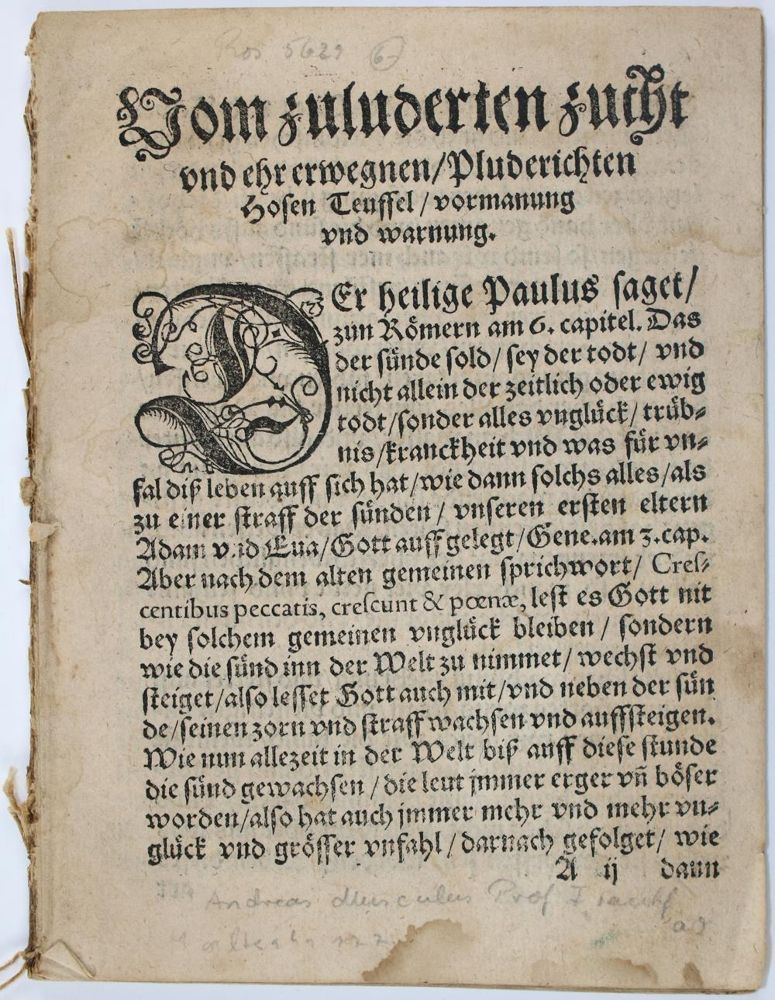 Ros 5629 6
Vom zuluderten zucht
vnd ehr erwegnen/Pluderichten
Hosen Teuffel/vormanung
vnd warnung.
DEr heilige Paulus saget/
zun Römern am 6. capitel. Das
der sünde sold/sey der todt/vnd
nicht allein der zeitlich oder ewig
todt/sonder alles vnglück/trüb-
nis/kranckheit vnd was für vn-
fal diß leben auff sich hat/wie dann solchs alles/als
zu einer straff der sünden/vnseren ersten eltern
Adam vnd Eua/Gott auffgelegt/Gene.am 3.cap.
Aber nach dem alten gemeinen sprichwort/ Cres-
centibus peccatis, crescunt & pœnæ, lest es Gott nit
bey solchem gemeinen vnglück bleiben/sondern
wie die sünd inn der Welt zu nimmet/wechst vnd
steiget/also lesset Gott auch mit/vnd neben der sün
de/seinen zorn vnd straff wachsen vnd auffsteigen.
Wie nun allezeit in der Welt biß auff diese stunde
die sünd gewachsen/die leut jmmer erger vñ böser
worden/also hat auch jmmer mehr vnd mehr vn-
glück vnd grösser vnfahl/darnach gefolget/wie
A ij dann
Andreas Musculus Prof